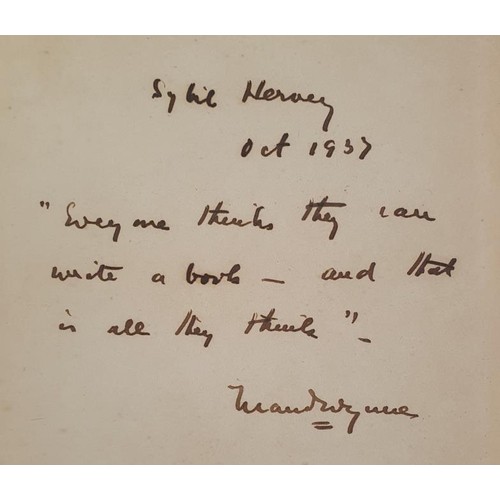 Sybil Hervey
Oct 1937
"Everyone thinks they can
write a book – and that
is all they think" –
Maud Wynne